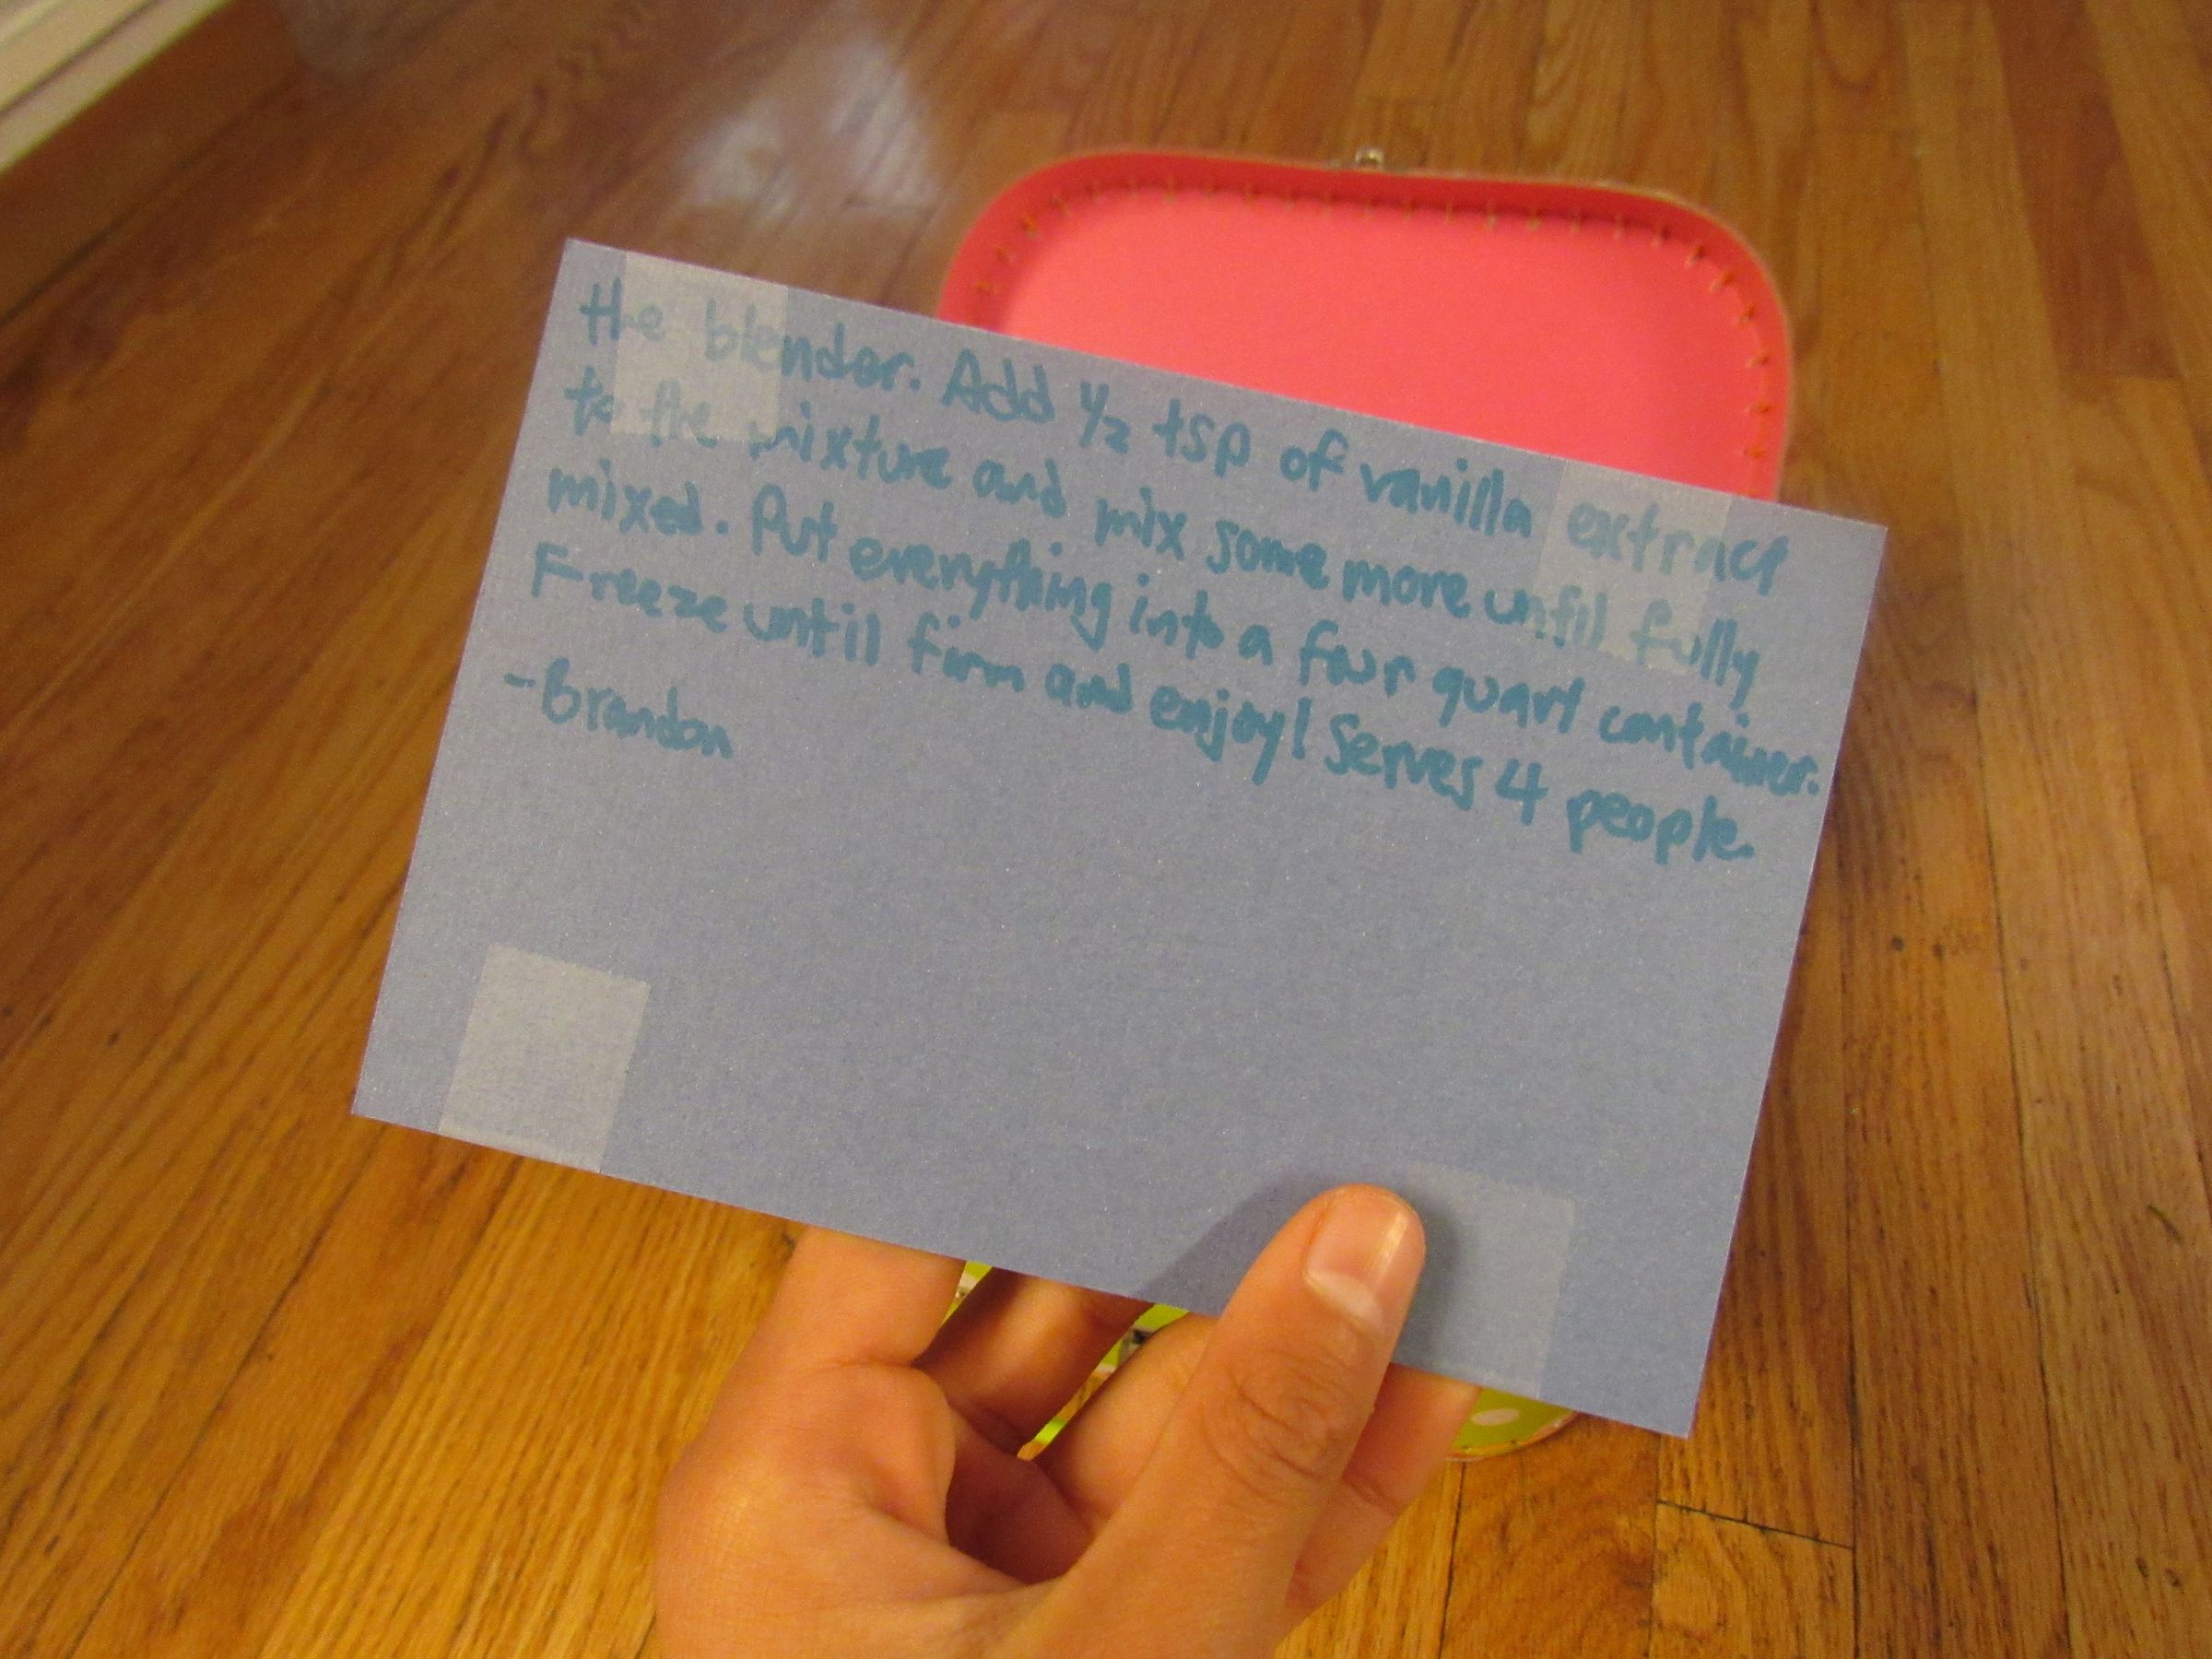 the blender. Add 1/2 tsp of vanilla extract
to the mixture and mix some more until fully
mixed. Put everything into a four quart container.
Freeze until firm and enjoy! Serves 4 people.
-Brandon